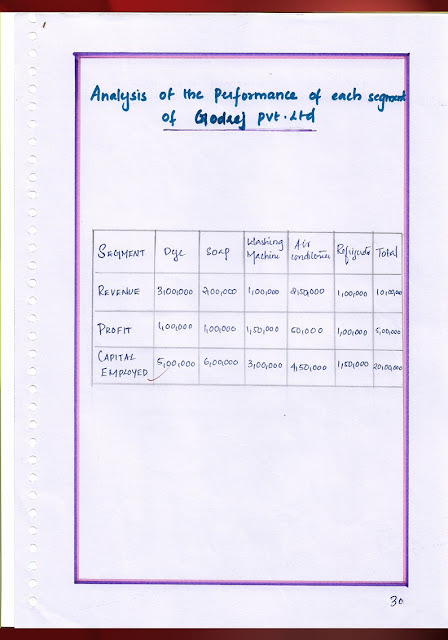 1
Analysis of the Performance of each segment
of Godrej Pvt. Ltd
SEGMENT Dye Soap Washing Machine Air conditioner Total
REVENUE 3,00,000 2,00,000 1,00,000 1,00,000
PROFIT 1,00,000 1,00,000 1,50,000 50,000 1,00,000 5,00,000
CAPITAL EMPLOYED 5,00,000 6,00,000 3,00,000 4,50,000 1,50,000 20,00,000
30